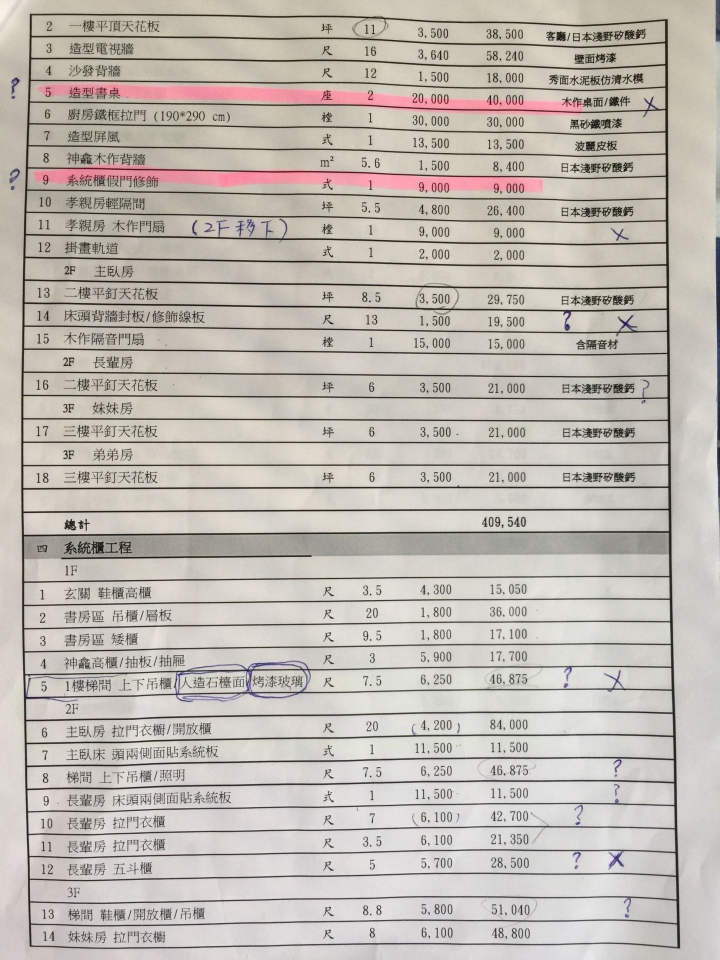 2 一樓平頂天花板 坪 11 3,500 38,500 客廳/日本淺野矽酸鈣
3 造型電視牆 尺 16 3,640 58,240 壁面烤漆
4 沙發背牆 尺 12 1,500 18,000 秀面水泥板仿清水模
? 5 造型書桌 座 2 20,000 40,000 木作桌面/鐵件 X
6 廚房鐵框拉門 (190*290 cm) 樘 1 30,000 30,000 黑砂鐵噴漆
7 造型屏風 式 1 13,500 13,500 波麗皮板
8 神龕木作背牆 m² 5.6 1,500 8,400 日本淺野矽酸鈣
? 9 系統櫃假門修飾 式 1 9,000 9,000
10 孝親房輕隔間 坪 5.5 4,800 26,400 日本淺野矽酸鈣
11 孝親房 木作門扇 (2F移下) 樘 1 9,000 9,000 X
12 掛畫軌道 式 1 2,000 2,000
2F 主臥房
13 二樓平釘天花板 坪 8.5 3,500 29,750 日本淺野矽酸鈣
14 床頭背牆封板/修飾線板 尺 13 1,500 19,500 ? X
15 木作隔音門扇 樘 1 15,000 15,000 含隔音材
2F 長輩房
16 二樓平釘天花板 坪 6 3,500 21,000 日本淺野矽酸鈣 ?
3F 妹妹房
17 三樓平釘天花板 坪 6 3,500 21,000 日本淺野矽酸鈣
3F 弟弟房
18 三樓平釘天花板 坪 6 3,500 21,000 日本淺野矽酸鈣
總計 409,540
四 系統櫃工程
1F
1 玄關 鞋櫃高櫃 尺 3.5 4,300 15,050
2 書房區 吊櫃/層板 尺 20 1,800 36,000
3 書房區 矮櫃 尺 9.5 1,800 17,100
4 神龕高櫃/抽板/抽屜 尺 3 5,900 17,700
5 1樓梯間 上下吊櫃/人造石檯面/烤漆玻璃 尺 7.5 6,250 46,875 ? X
2F
6 主臥房 拉門衣櫥/開放櫃 尺 20 (4,200) 84,000
7 主臥床 頭兩側面貼系統板 式 1 11,500 11,500
8 梯間 上下吊櫃/照明 尺 7.5 6,250 46,875 ?
9 長輩房 床頭兩側面貼系統板 式 1 11,500 11,500 ?
10 長輩房 拉門衣櫃 尺 7 (6,100) 42,700 ?
11 長輩房 拉門衣櫃 尺 3.5 6,100 21,350
12 長輩房 五斗櫃 尺 5 5,700 28,500 ? X
3F
13 梯間 鞋櫃/開放櫃/吊櫃 尺 8.8 5,800 51,040 ?
14 妹妹房 拉門衣櫥 尺 8 6,100 48,800